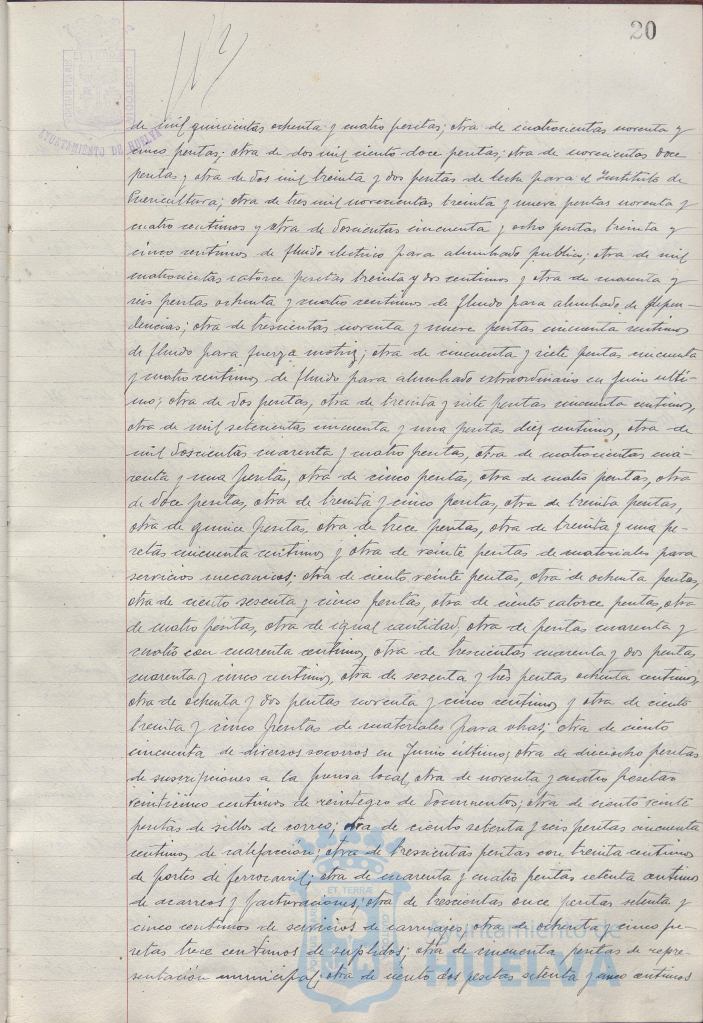 20
AYUNTAMIENTO DE HUELVA
de mil quinientas ochenta y cuatro pesetas; otra de cuatrocientas noventa y
cinco pesetas; otra de dos mil ciento doce pesetas; otra de novecientas doce
pesetas y otra de dos mil treinta y dos pesetas de leche para el Instituto de
Puericultura; otra de tres mil novecientas treinta y nueve pesetas noventa y
cuatro centimos y otra de doscientas cincuenta y ocho pesetas treinta y
cinco centimos de fluido electrico para alumbrado publico; otra de mil
cuatrocientas catorce pesetas treinta y dos centimos y otra de cuarenta y
seis pesetas ochenta y cuatro centimos de fluido para alumbrado de depen-
dencias; otra de trescientas noventa y nueve pesetas cincuenta centimos
de fluido para fuerza motriz; otra de cincuenta y siete pesetas cincuenta
y cuatro centimos de fluido para alumbrado extraordinario en Junio ulti-
mo; otra de dos pesetas, otra de treinta y siete pesetas cincuenta centimos,
otra de mil setecientas cincuenta y una pesetas diez centimos, otra de
mil doscientas cuarenta y cuatro pesetas, otra de cuatrocientas cua-
renta y una pesetas, otra de cinco pesetas, otra de cuatro pesetas, otra
de doce pesetas, otra de treinta y cinco pesetas, otra de treinta pesetas,
otra de quince pesetas, otra de trece pesetas, otra de treinta y una pe-
setas cincuenta centimos y otra de veinte pesetas de materiales para
servicios mecanicos; otra de ciento veinte pesetas, otra de ochenta pesetas,
otra de ciento sesenta y cinco pesetas, otra de ciento catorce pesetas, otra
de cuatro pesetas, otra de igual cantidad, otra de pesetas cuarenta y
cuatro con cuarenta centimos, otra de trescientas cuarenta y dos pesetas
cuarenta y cinco centimos, otra de sesenta y tres pesetas ochenta centimos,
otra de ochenta y dos pesetas noventa y cinco centimos y otra de ciento
treinta y cinco pesetas de materiales para obras; otra de ciento
cincuenta de diversos socorros en Junio último; otra de dieciocho pesetas
de suscripciones a la prensa local, otra de noventa y cuatro pesetas
veinticinco centimos de reintegro de documentos; otra de ciento veinte
pesetas de sellos de correo; otra de ciento setenta y seis pesetas cincuenta
centimos de calefaccion; otra de trescientas pesetas con treinta centimos
de portes de ferrocarril; otra de cuarenta y cuatro pesetas setenta centimos
de acarreos y facturaciones; otra de trescientas once pesetas setenta y
cinco centimos de servicios de carruajes; otra de ochenta y cinco pe-
setas trece centimos de suplidos; otra de cincuenta pesetas de repre-
sentación municipal; otra de ciento dos pesetas setenta y cinco centimos
Ayuntamiento de
HUELVA